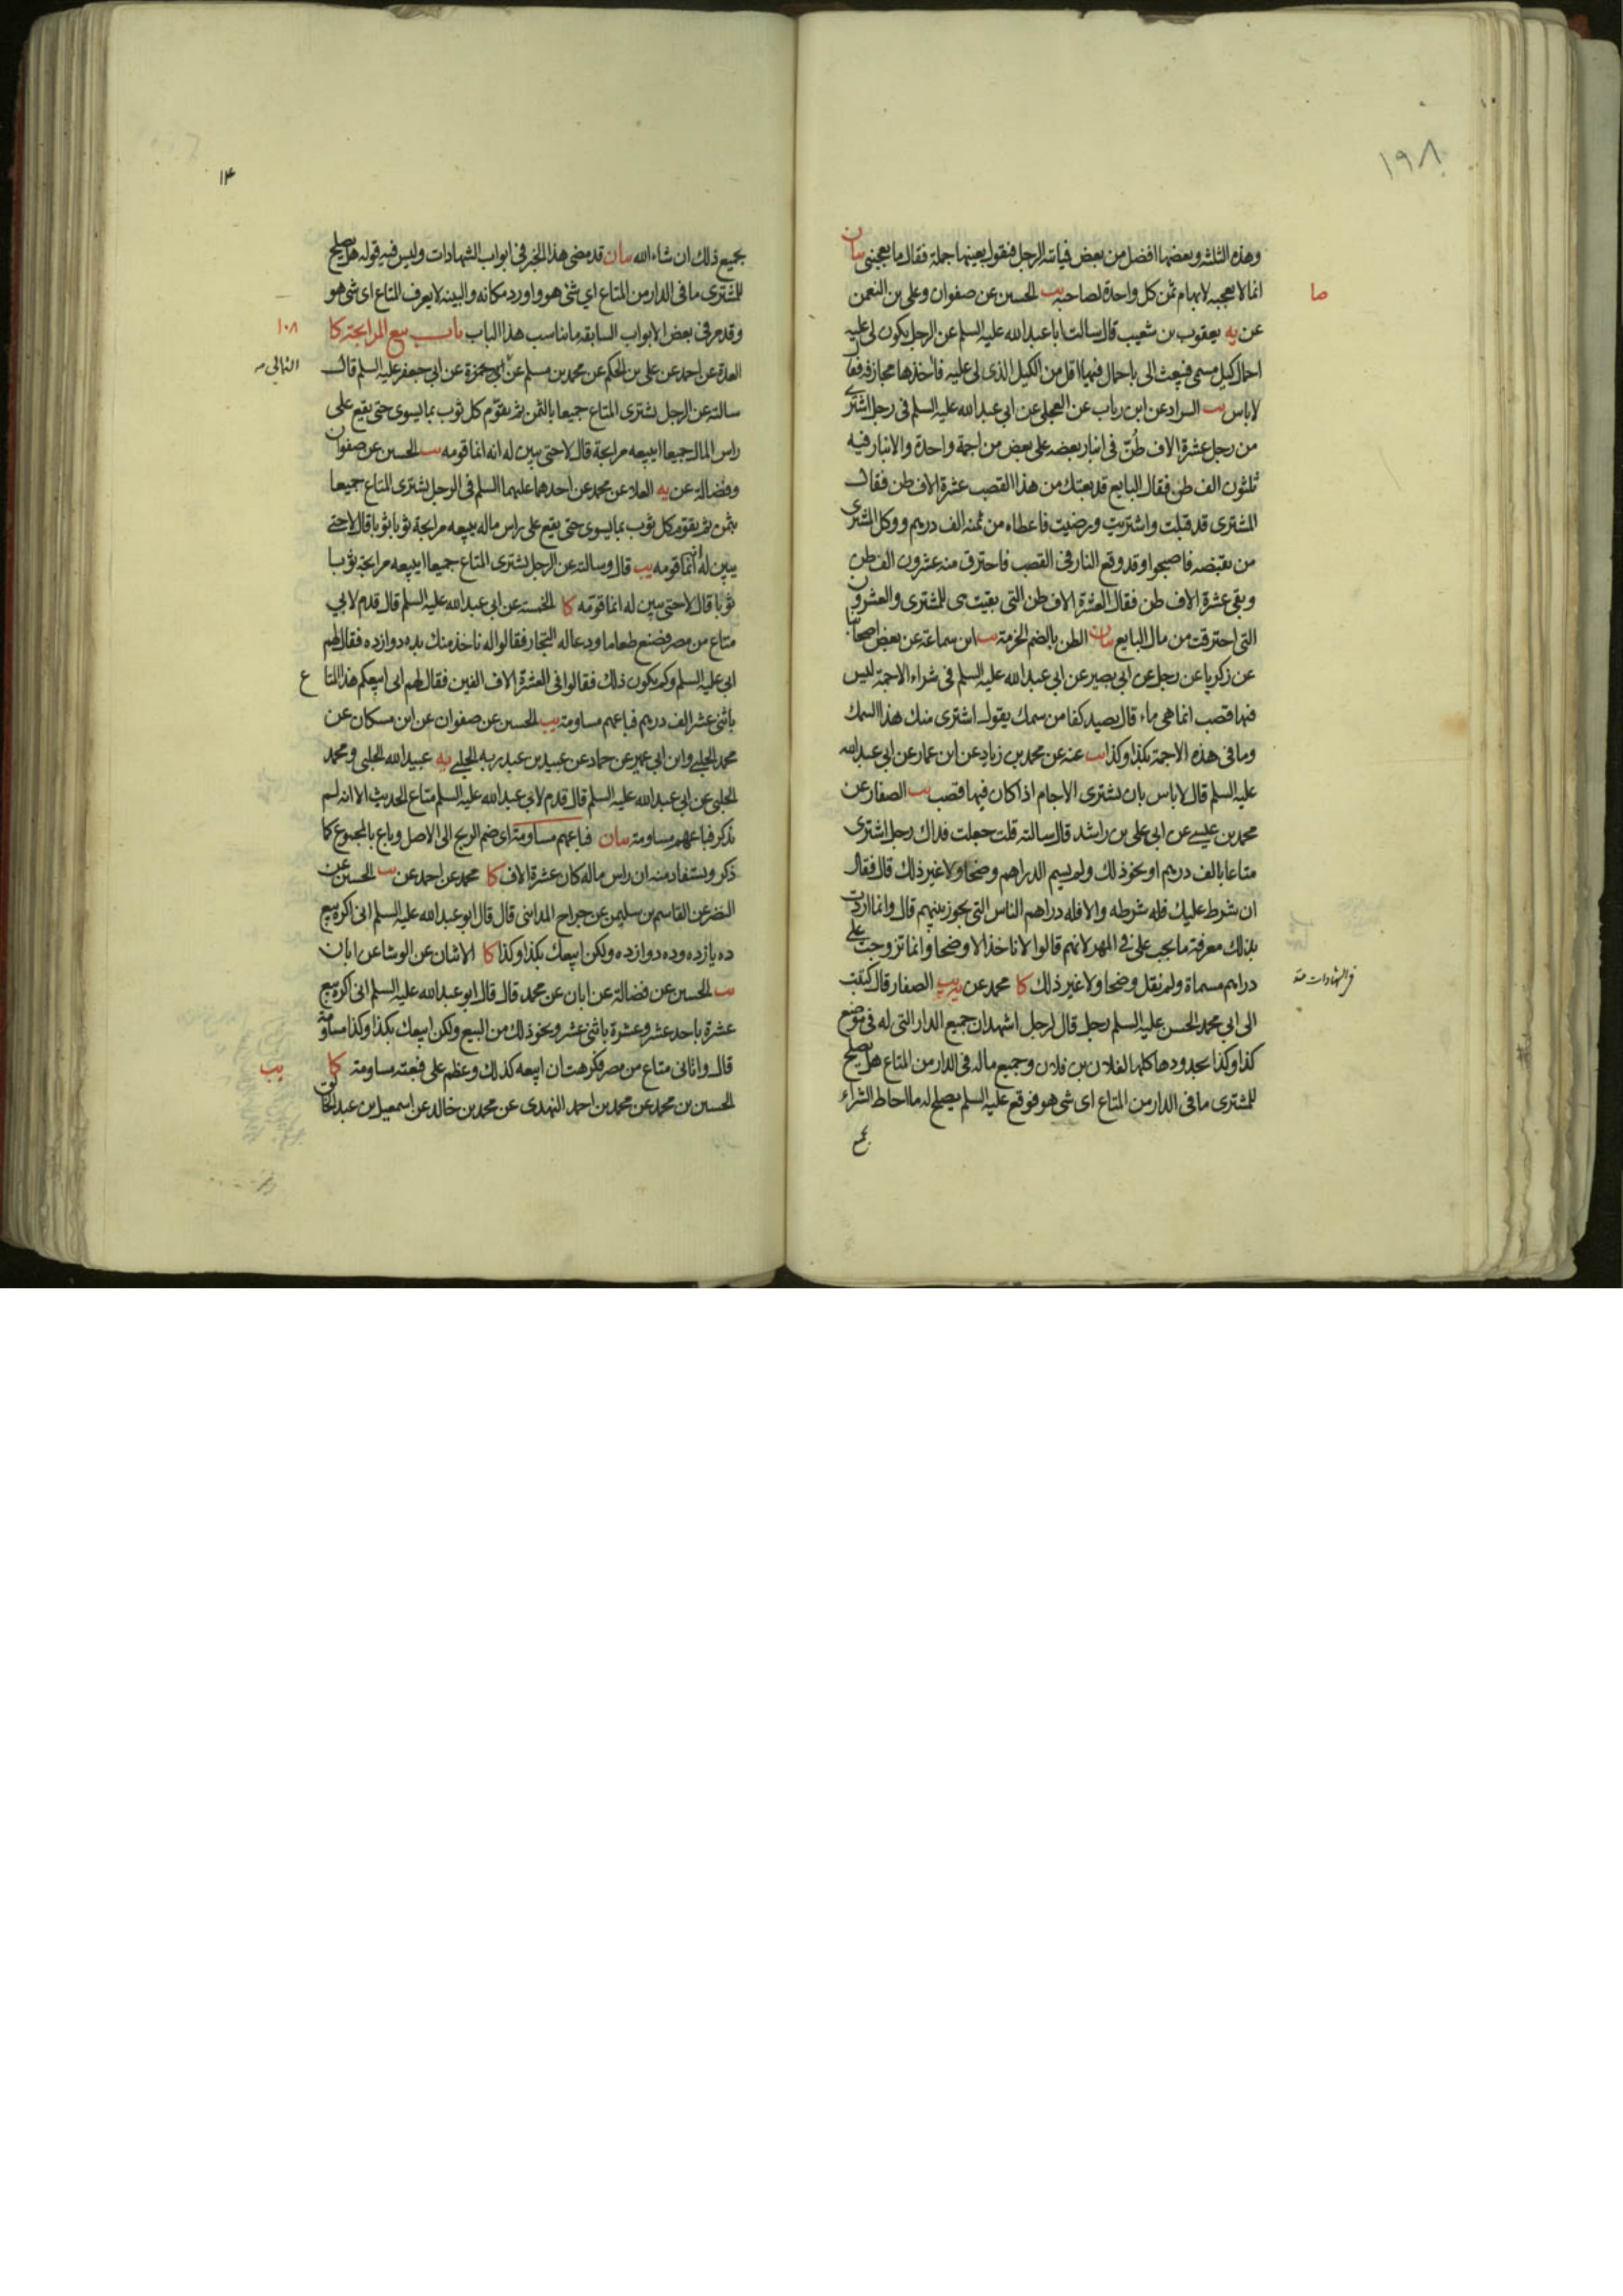 ١٩٨
وهذه الثلثه وبعضها افضل من بعض فياتيه الرجل فيقول بعينها جملة فقال ما يعجبنى بيان
انما لا يعجبه لابهام ثمن كل واحدة لصاحبه يب الحسين عن صفوان وعلى بن النعمن
صا
عن يه يعقوب بن شعيب قال سالت ابا عبد الله عليه السلم عن الرجل يكون لى عليه
احمال كيل مسمى فيبعث الى باحمال فيها اقل من الكيل الذى لى عليه فاخذها مجازفه فقال
لا باس يب السراد عن ابن رباب عن العجلى عن ابي عبد الله عليه السلم فى رجل اشترى
من رجل عشرة الاف طنّ فى انبار بعضه على بعض من اجمة واحدة والانبار فيه
ثلثون الف طن فقال البايع قد بعتك من هذا القصب عشرة الاف طن فقال
المشترى قد قبلت واشتريت ورضيت فاعطاه من ثمنه الف درهم ووكل المشترى
من يقبضه فاصبحوا وقد وقع النار فى القصب فاحترق منه عشرون الف طن
وبقى عشرة الاف طن فقال العشرة الاف طن التى بقيت هى للمشترى والعشرون
التى احترقت من مال البايع بيان الطن بالضم الحزمة يب ابن سماعة عن بعض اصحابنا
عن زكريا عن رجل عن ابي بصير عن ابي عبد الله عليه السلم فى شراء الاجمة ليس
فيها قصب انما هى ماء قال يصيد كفا من سمك يقول اشترى منك هذا السمك
وما فى هذه الاجمة بكذا وكذا يب عنه عن محمد بن زياد عن ابن عمار عن ابي عبد الله
عليه السلم قال لا باس بان يشترى الاجام اذا كان فيها قصب يب الصفار عن
محمد بن عيسى عن ابي على بن راشد قال سالته قلت جعلت فداك رجل اشترى
متاعا بالف درهم او نحو ذلك ولم يسم الدراهم وضحا ولا غير ذلك قال فقال
ان شرط عليك فله شرطه والا فله دراهم الناس التى تجوز بينهم قال وانما اردت
بذلك معرفة ما يجب على فى المهر لانهم قالوا لا ناخذ الا وضحا وانما تزوجت على
دراهم مسماة ولم نقل وضحا ولا غير ذلك كا محمد عن يه يب الصفار قال كتبت
فى الشهادات منه
الى ابي محمد الحسن عليه السلم رجل قال لرجل اشهد ان جميع الدار التى له فى موضع
كذا وكذا بحدودها كلها لفلان بن فلان وجميع ماله فى الدار من المتاع هل يصلح
للمشترى ما فى الدار من المتاع اى شى هو فوقع عليه السلم يصلح له ما احاط الشراء
بجميع ذلك ان شاء الله بيان قد مضى هذا الخبر فى ابواب الشهادات وليس فيه قوله هل يصلح
للمشترى ما فى الدار من المتاع اي شئ هو واورد مكانه والبينه لا يعرف المتاع اى شى هو
وقد مر فى بعض الابواب السابقه ما يناسب هذا الباب باب بيع المرابحة كا
١٠٨
العدة عن احمد عن على بن الحكم عن محمد بن مسلم عن ابي حمزة عن ابي جعفر عليه السلم قال
الثمالى
سالته عن الرجل يشترى المتاع جميعا بالثمن ثم يقوّم كل ثوب بما يسوى حتى يقع على
راس المال جميعا ايبيعه مرابحة قال لا حتى يبين له انه انما قومه يب الحسين عن صفوان
وفضالة عن يه العلا عن محمد عن احدهما عليهما السلم فى الرجل يشترى المتاع جميعا
بثمن ثم يقوم كل ثوب بما يسوى حتى يقع على راس ماله يبيعه مرابحة ثوبا ثوبا قال لا حتى
يبين له انما قومه يب قال وسالته عن الرجل يشترى المتاع جميعا ايبيعه مرابحة ثوبا
ثوبا قال لا حتى يبين له انما قومه كا الخمسة عن ابي عبد الله عليه السلم قال قدم لابي
متاع من مصر فصنع طعاما ودعا له التجار فقالوا له ناخذ منك بده دوازده فقال لهم
ابي عليه السلم وكم يكون ذلك فقالوا فى العشرة الاف الفين فقال لهم انى ابيعكم هذا المتاع
باثنى عشر الف درهم فباعهم مساومة يب الحسين عن صفوان عن ابن مسكان عن
محمد الحلبى وابن ابي عمير عن حماد عن عبيد بن عبد ربه الحلبى يه عبيد الله الحلبى ومحمد
الحلبى عن ابي عبد الله عليه السلم قال قدم لابي عبد الله عليه السلم متاع الحديث الا انه لم
يذكر فباعهم مساومة بيان فباعهم مساومة اى ضم الربح الى الاصل وباع بالمجموع كا
ذكر ويستفاد منه ان راس ماله كان عشرة الاف كا محمد عن احمد عن يب الحسين عن
النضر عن القاسم بن سليمن عن جراح المداينى قال قال ابو عبد الله عليه السلم انى اكره بيع
ده يازده وده دوازده ولكن ابيعك بكذا وكذا كا الاثنان عن الوشا عن ابان
يب الحسين عن فضالة عن ابان عن محمد قال قال ابو عبد الله عليه السلم انى اكره بيع
عشرة باحد عشر وعشرة باثنى عشر ونحو ذلك من البيع ولكن ابيعك بكذا وكذا مساومة
قال واتانى متاع من مصر فكرهت ان ابيعه كذلك وعظم على فبعته مساومة كا
يب
الحسين بن محمد عن محمد بن احمد النهدى عن محمد بن خالد عن اسمعيل بن عبد الخالق